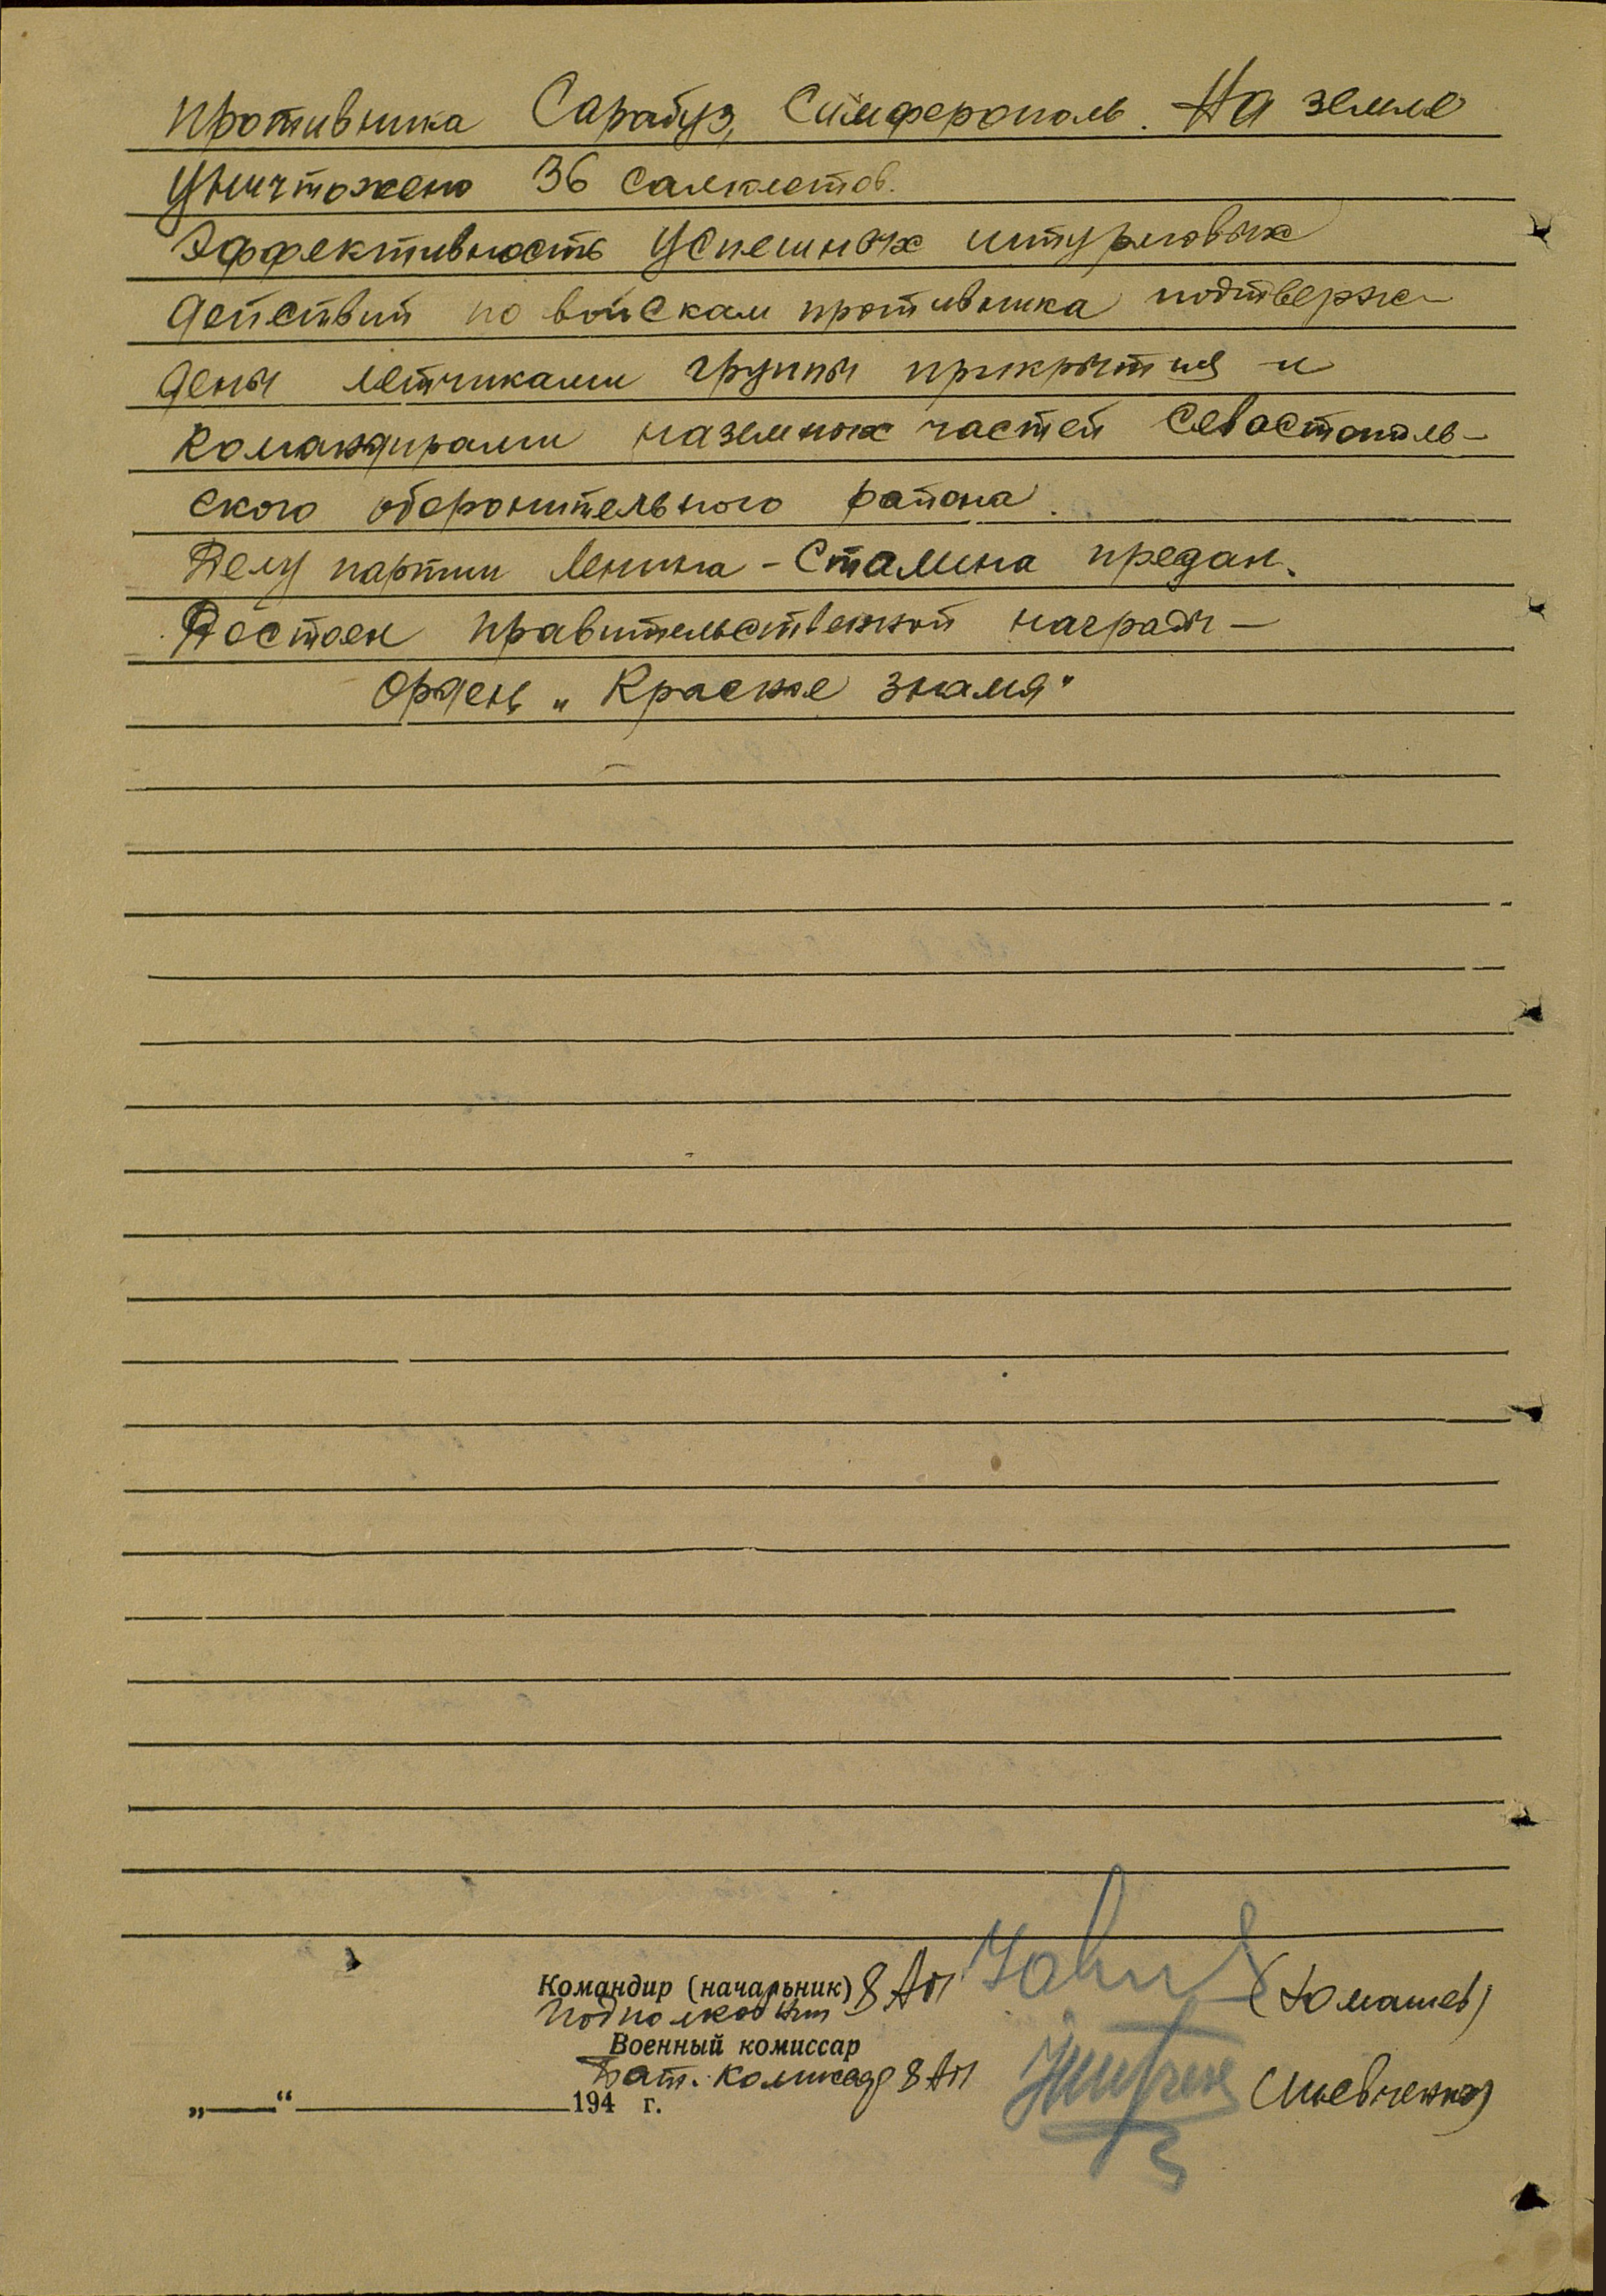 противника Сарабуз, Симферополь. На земле
уничтожено 36 самолетов.
Эффективность успешных штурмовых
действий по войскам противника подтверж-
дены летчиками группы прикрытия и
командирами наземных частей Севастополь-
ского оборонительного района.
Делу партии Ленина - Сталина предан.
Достоен правительственной награды -
Орден „Красное знамя"
Командир (начальник) 8 АП (Юмашев)
Подполковник
Военный комиссар
Бат. комиссар 8 АП (Шевченко)
„——“ 194 г.